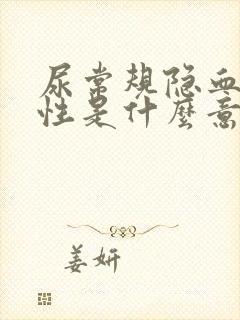 尿常规隐血
性是什麽意
姜妍